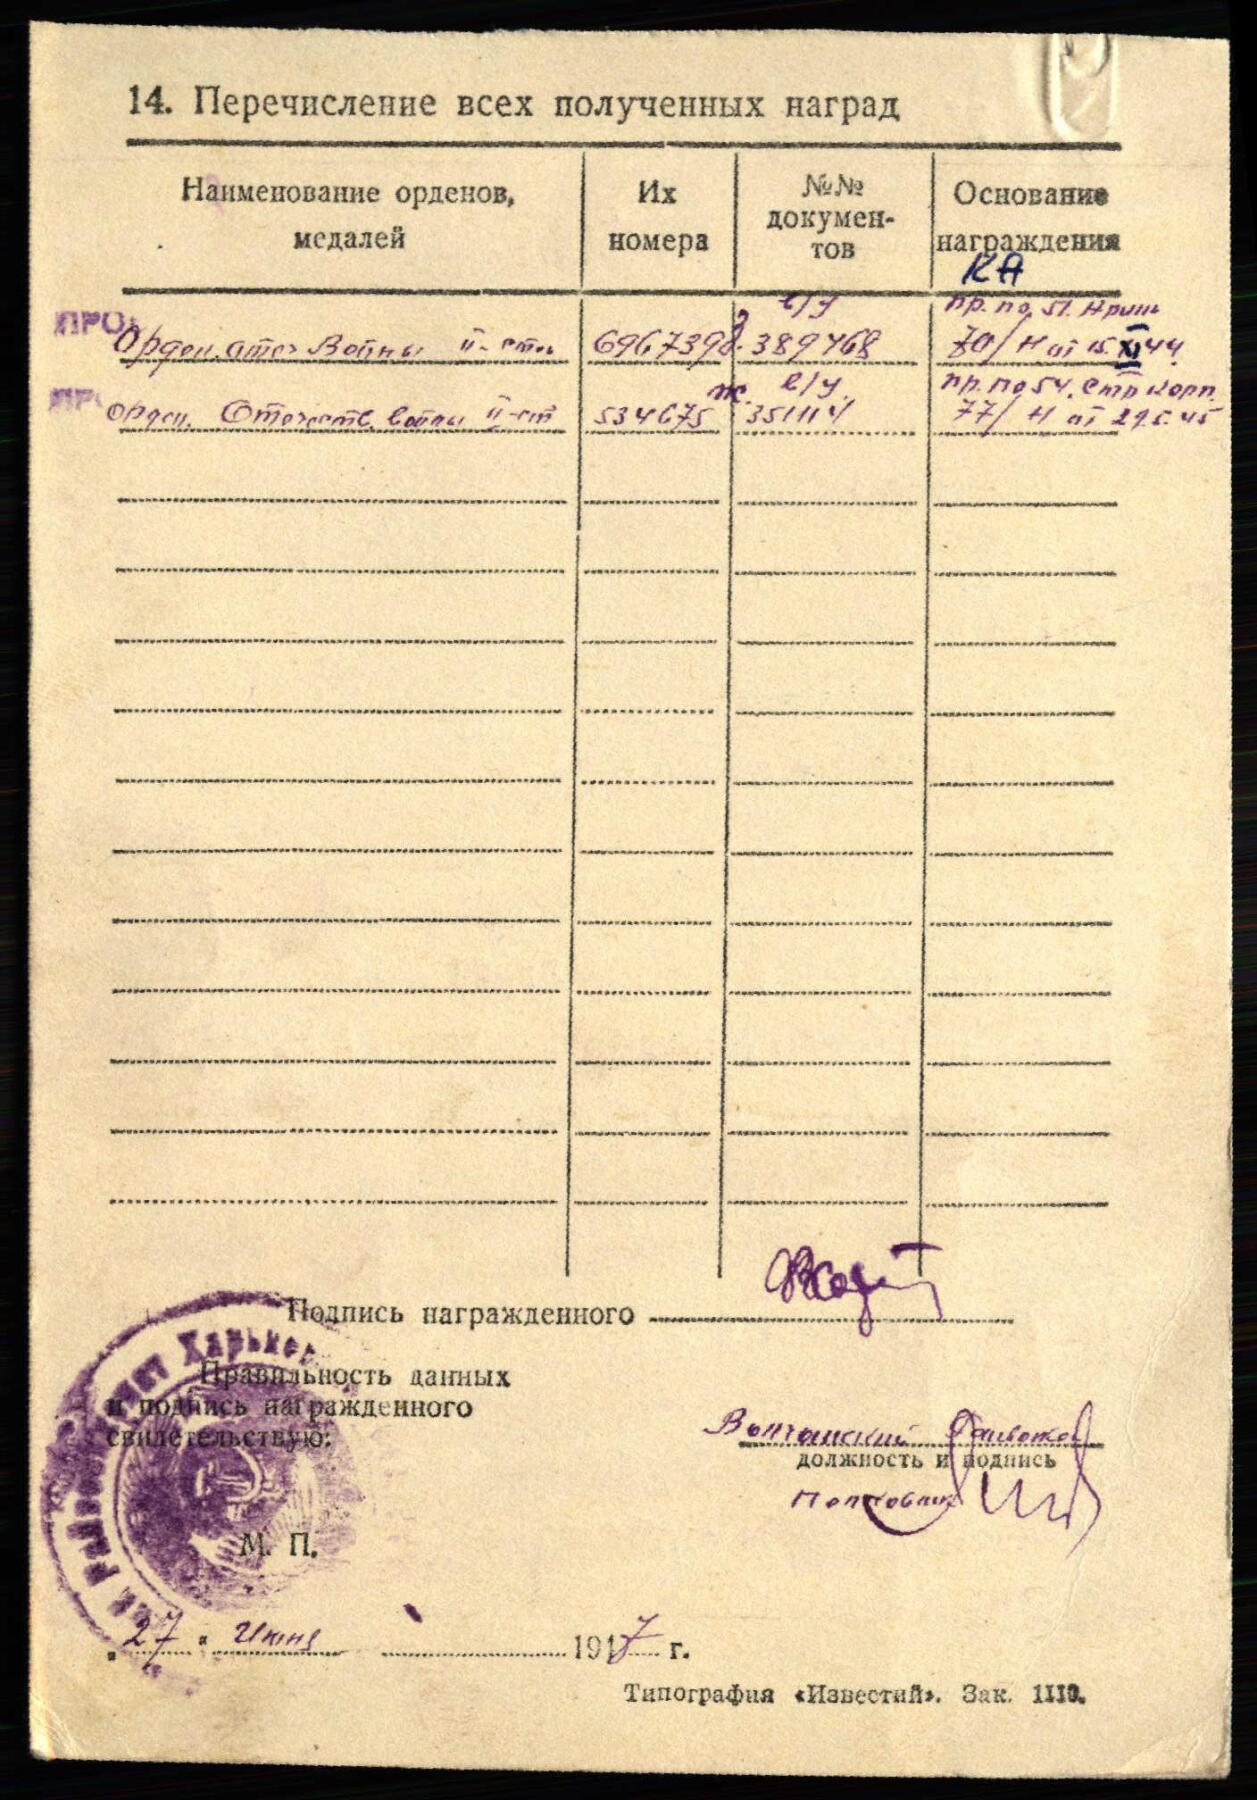 14. Перечисление всех полученных наград
Наименование орденов, медалей
Их номера
№№ документов
Основание награждения
КА
ПРО
в/у
пр. по 51.
Орден Отеч Войны II-степ 696739 389468 70/Н от 15.XI 44
ПР
в/у.
пр. по 54. Стр корп.
Орден. Отечеств. войны II-ст 534675 351114 77/Н от 29.5.45
Подпись награжденного
Правильность данных
и подпись награжденного
свидетельствую:
Волчанский Райвоенком
должность и подпись
Полковник
М. П.
"27" Июня 1947 г.
Типография «Известий». Зак. 1110.